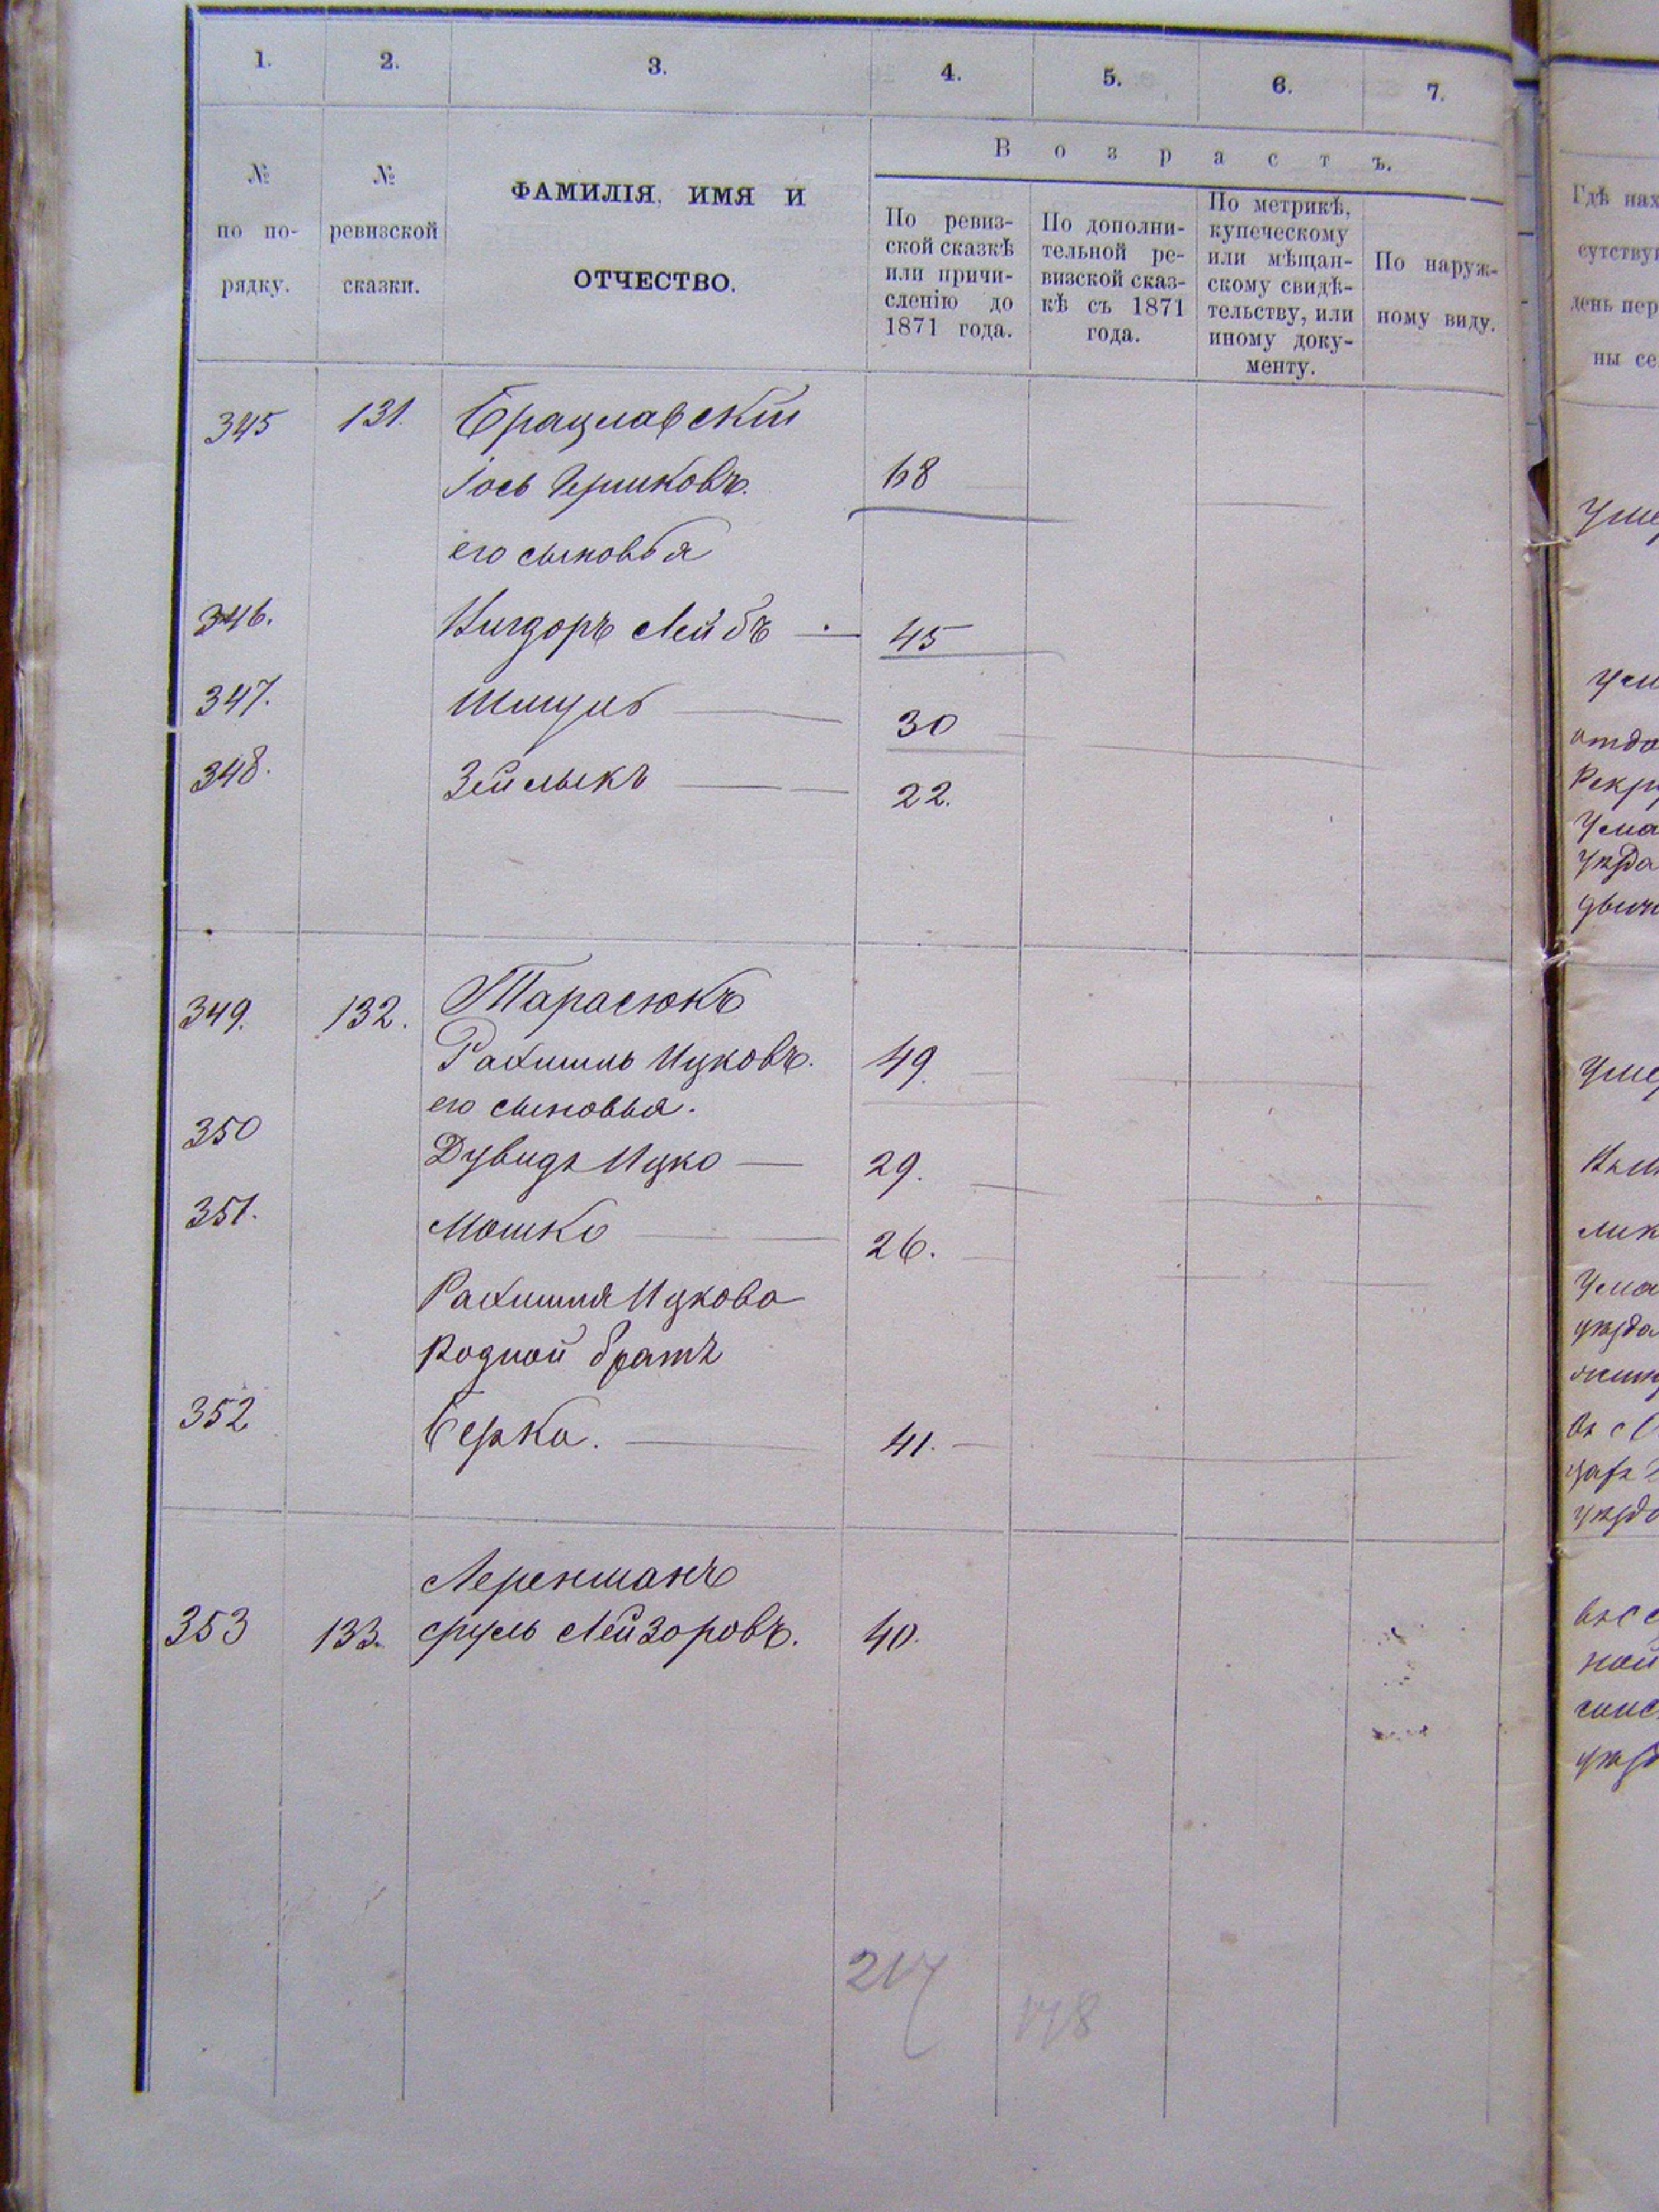 1. 2. 3. 4. 5. 6. 7.
№ по по-рядку.
№ ревизской сказки.
ФАМИЛІЯ, ИМЯ И
ОТЧЕСТВО.
Возрастъ.
По ревиз-
ской сказкѣ
или причи-
сленію до
1871 года.
По дополни-
тельной ре-
визской сказ-
кѣ съ 1871
года.
По метрикѣ,
купеческому
или мѣщан-
скому свидѣ-
тельству, или
иному доку-
менту.
По наруж-
ному виду.
345 131. Брацлавскій
Іось Гершковъ. 68
его сыновья
346. Вигдоръ Лейбъ 45
347. 30
348. Зейлыкъ 22.
349. 132. Тарасюкъ
Рахмиль Ицковъ. 49.
его сыновья.
350 Дувидъ Ицко 29.
351. Мошко 26.
Рахмиля Ицкова
Родной братъ
352 Берко. 41.
Леренманъ
353 133. Сруль Лейзоровъ. 40.
217
178
Гдѣ нах
сутствую
день пер
ны се